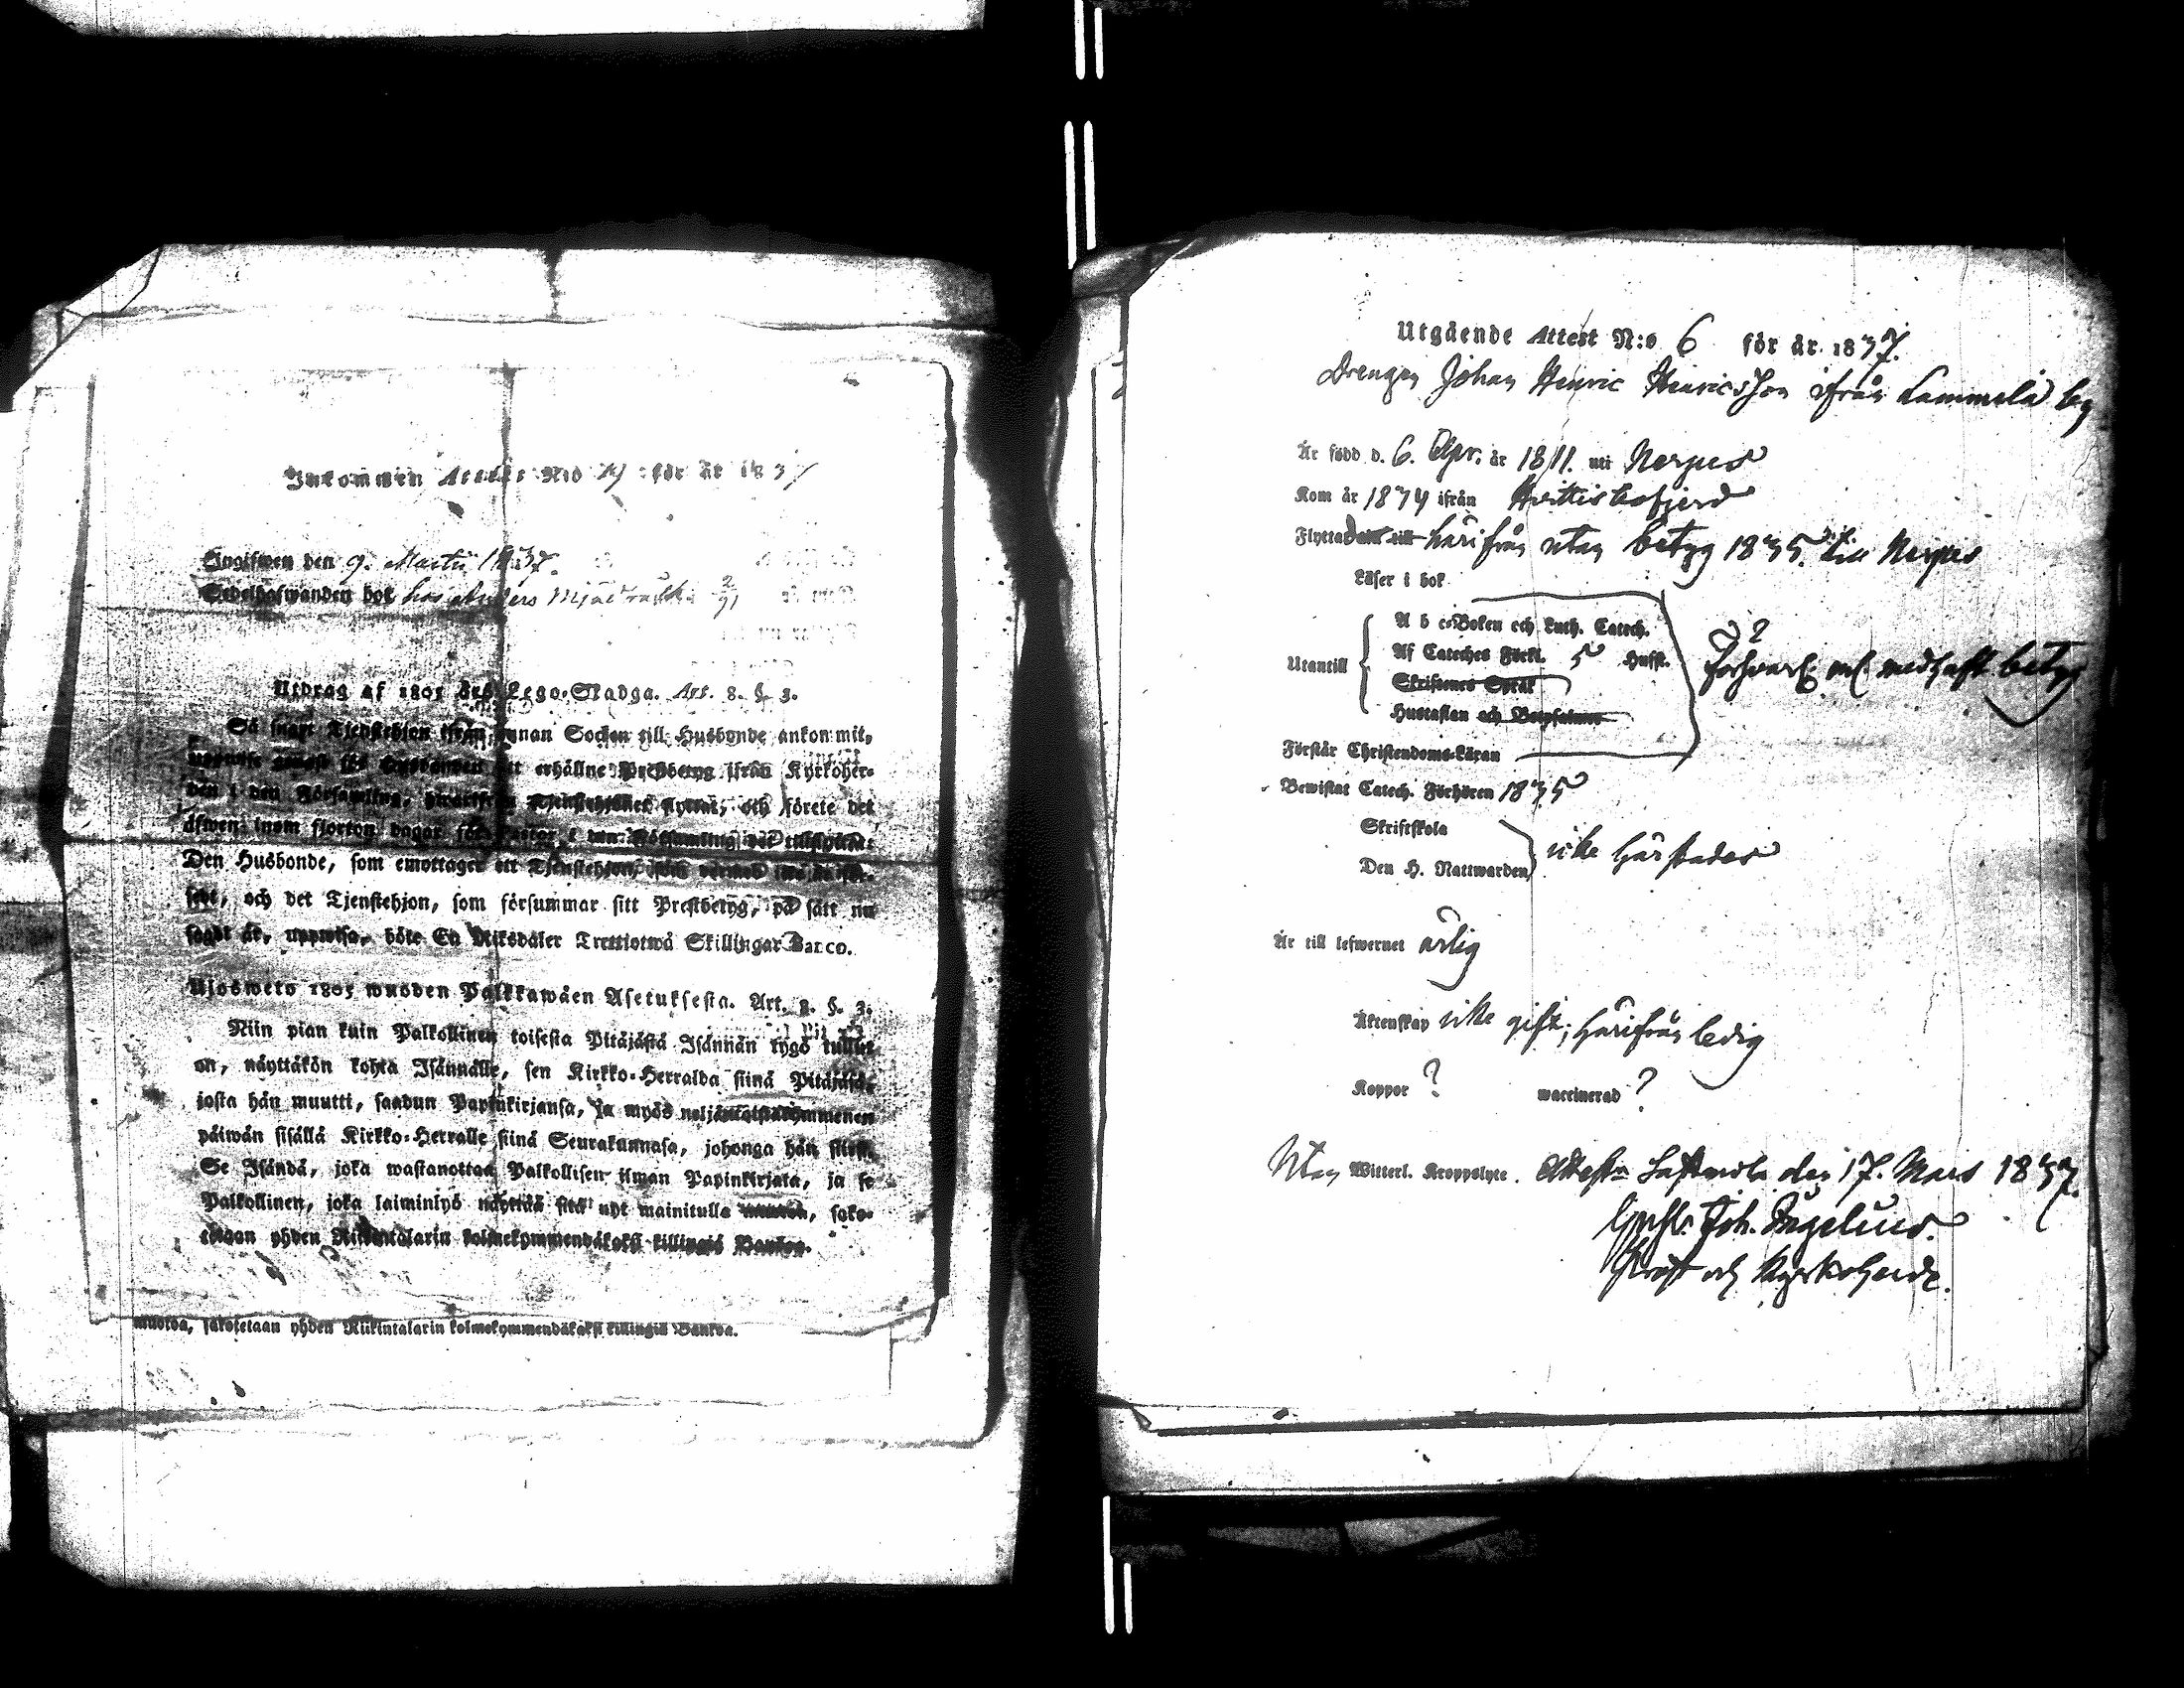 Inkommen Attest N:o 19 för år 1837
Angifwen den 9. Martii 1837.
Sedelhafwanden bor hos Anders
Utdrag af 1805 års Lego-Stadga. Art. 8. §. 3.
Så snart Tjenstehjon ifrån annan Socken till Husbonde ankommit,
erhållne Prestbetyg ifrån Kyrkoher-
den i den Församling, hwarifrån Tjenstehjonet flyttat, och förete det
äfwen inom fjorton dagar för Pastor i den Församling det tillflyttat.
Den Husbonde, som emottager ett Tjenstehjon, som
sedt, och det Tjenstehjon, som försummar sitt Prestbetyg, på sätt nu
sagdt är, uppwisa, böte En Riksdaler Trettiotwå Skillingar Banco.
Ulosweto 1805 wuoden Palkkawäen Asetuksesta. Art. 8. §. 3.
Niin pian kuin Palkollinen toisesta Pitäjästä Isännän tygö tullut
on, näyttäkön kohta Isännälle, sen Kirkko-Herralda siinä Pitäjäsä,
josta hän muutti, saadun Papinkirjansa, ja myös neljäntoistakymmenen
päiwän sisällä Kirkko-Herralle siinä Seurakunnasa, johonga hän siirsi.
Se Isändä, joka wastanottaa Palkollisen ilman Papinkirjata, ja se
Palkollinen, joka laiminlyö näyttää sitä nyt mainitulla muotoa, sako-
tetaan yhden Riikintalarin kolmekymmendäkaksi killingiä Bankoa.
muotoa, sakotetaan yhden Riikintalarin kolmekymmendäkaksi killingiä Bankoa.
Utgående Attest N:o 6 för år 1837.
Drengen Johan Henric Henricsson ifrån Lammela by
Är född d. 6. Apr. år 1811. uti Nerpes
Kom år 1834 ifrån Hvittisbofjerd
Flyttade härifrån utan betyg 1835. till Nerpes
Läser i bok
Utantill
A b c-Boken och Luth. Catech.
Af Cateches Förkl. 5 Hufst.
Skriftenes Språk
Hustaflan och Botpsalmer
? betyg
Förstår Christendoms-Läran
Bewistat Catech. Förhören 1835
Skriftskola
Den H. Nattwarden
icke härstädes
Är till lefwernet ärlig
Äktenskap icke gift; härifrån ledig
Koppor ? waccinerad ?
Utan Witterl. Kroppslyte. Lastmola den 17. Mars 1837.
Joh. Ingelius.
Prost och Kyrkoherde.